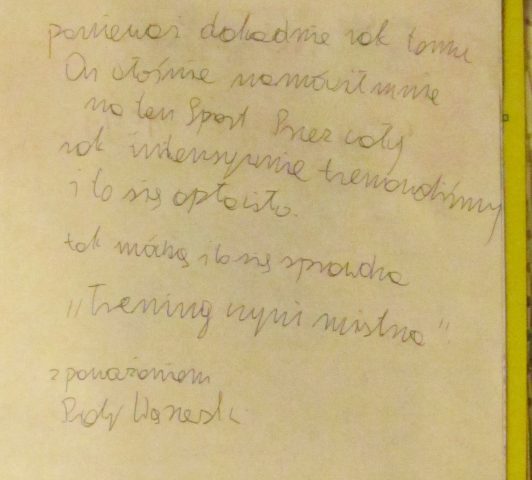 ponieważ dokładnie rok temu
On własnie namówił mnie
na ten Sport Przez cały
rok intensywnie trenowaliśmy
i to się opłaciło.
tak mówią i to się sprawdza
„Trening czyni mistrza”.
z poważaniem